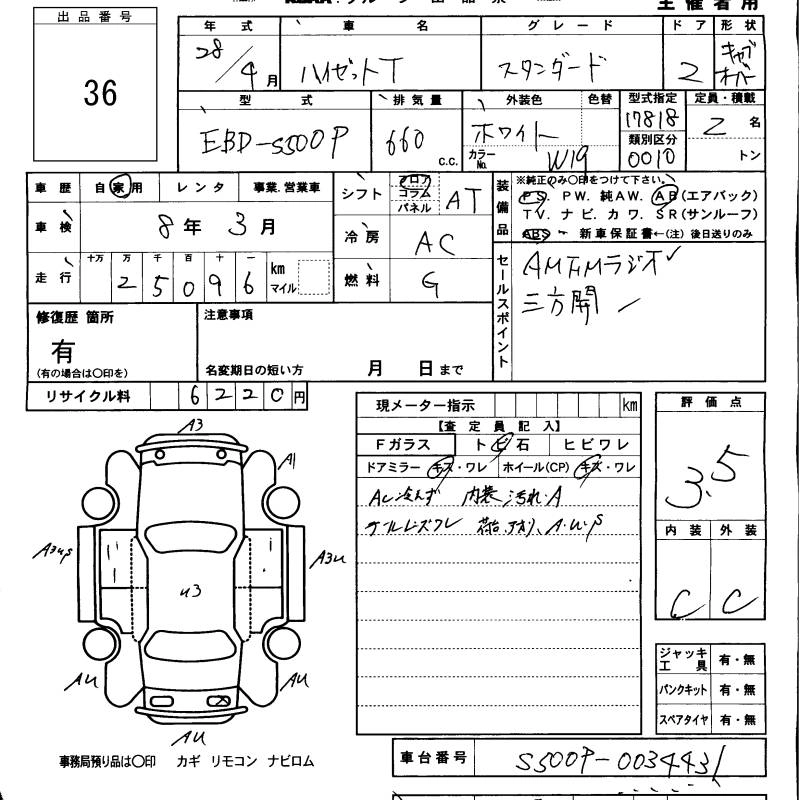 主催者用
出品番号
36
年式 車名 グレード ドア 形状
28/4月 ハイゼットT スタンダード 2 キャブオーバー
型式 排気量 外装色 色替 型式指定 定員・積載
EBD-S500P 660 c.c. ホワイト カラーNo. W19 17818 2 名
類別区分
0010 トン
車歴 自家用 レンタ 事業.営業車
車検 8年 3月
走行 十万 万 千 百 十 一 km マイル
2 5 0 9 6
シフト フロア コラム パネル AT
冷房 AC
燃料 G
装備品 ※純正のみ〇印をつけて下さい。
PS. PW. 純AW. AB(エアバック)
TV. ナビ. カワ. SR(サンルーフ)
ABS 新車保証書←(注) 後日送りのみ
セールスポイント
AMFMラジオ✓
三方開
修復歴 箇所
有
(有の場合は〇印を)
注意事項
名変期日の短い方 月 日まで
リサイクル料 6220円
現メーター指示 km
【査定員記入】
Fガラス トビ石 ヒビワレ
ドアミラー キズ・ワレ ホイール(CP) キズ・ワレ
AC冷えず 内装 汚れ.A
荷台 A.U.S
評価点
3.5
内装 外装
C C
ジャッキ工具 有・無
パンクキット 有・無
スペアタイヤ 有・無
A3
A1
A3US
A3U
U3
AU
AU
AU
事務局預り品は〇印 カギ リモコン ナビロム
車台番号 S500P-0034431